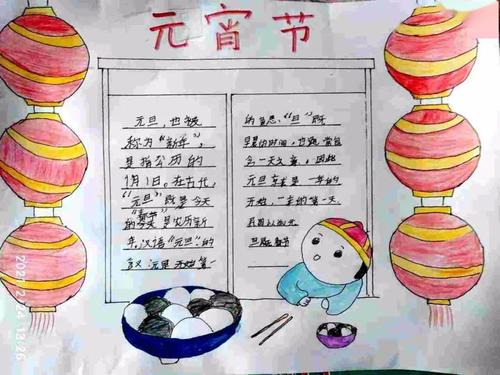 元宵节
元旦，也被
称为“新年”，
是指公历的
1月1日。在古代，
“元旦”既是今天
的“春节”是农历新
年，汉语“元旦”的
含义 元是 开始 第一
的意思、“旦”既
早晨的时间，也既
今一天之意，因此
元旦 一年的
开始，一年的第一天
2021.2.24 13:26